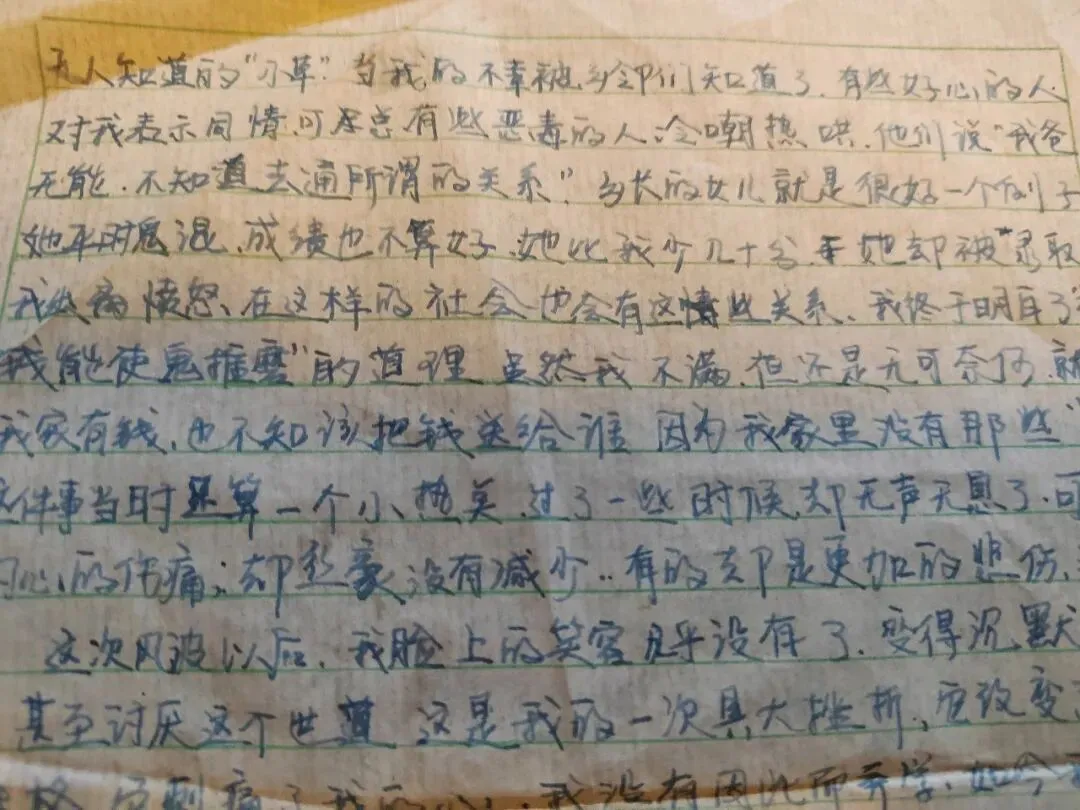 无人知道的"小草"当我的不幸被乡邻们知道了.有些好心的人
对我表示同情,可尽总有些恶毒的人冷嘲热哄.他们说"我爸
无能.不知道去通所谓的关系"乡长的女儿就是很好一个例子
她平时鬼混、成绩也不算好.她比我少几十分.她却被录取
我愤怒、在这样的社会也会有这些关系、我终于明白了
我能使鬼推磨"的道理 虽然我不满.但还是无可奈何.就
我家有钱,也不知该把钱送给谁 因为我家里没有那些"
这件事当时还算一个小热矣.过了一些时候.却无声无息了.可
内心的伤痛;却丝豪没有减少..有的却是更加的悲伤,
这次风波以后.我脸上的笑容几乎没有了.变得沉默
甚至讨厌这个世道 这是我的一次具大挫折,也改变
格 刺痛了我的心.我没有因此而弃学.如今